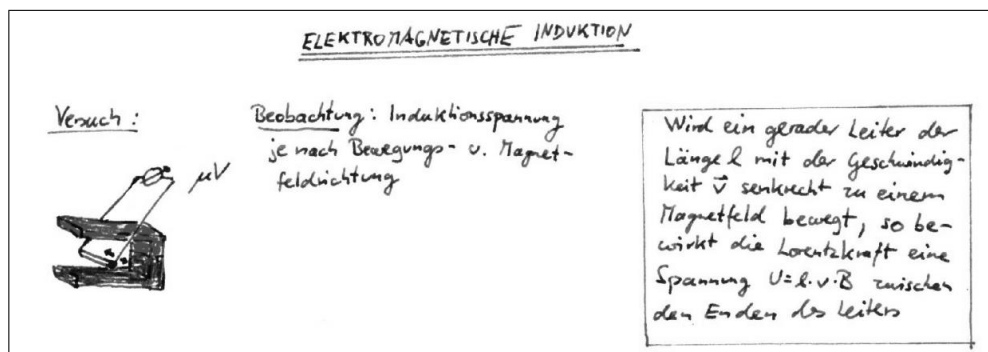 ELEKTROMAGNETISCHE INDUKTION
Versuch:
µV
Beobachtung: Induktionsspannung
je nach Bewegungs- u. Magnet-
feldrichtung
Wird ein gerader Leiter der
Länge l mit der Geschwindig-
keit v⃗ senkrecht zu einem
Magnetfeld bewegt, so be-
wirkt die Lorentzkraft eine
Spannung U=l·v·B zwischen
den Enden des Leiters